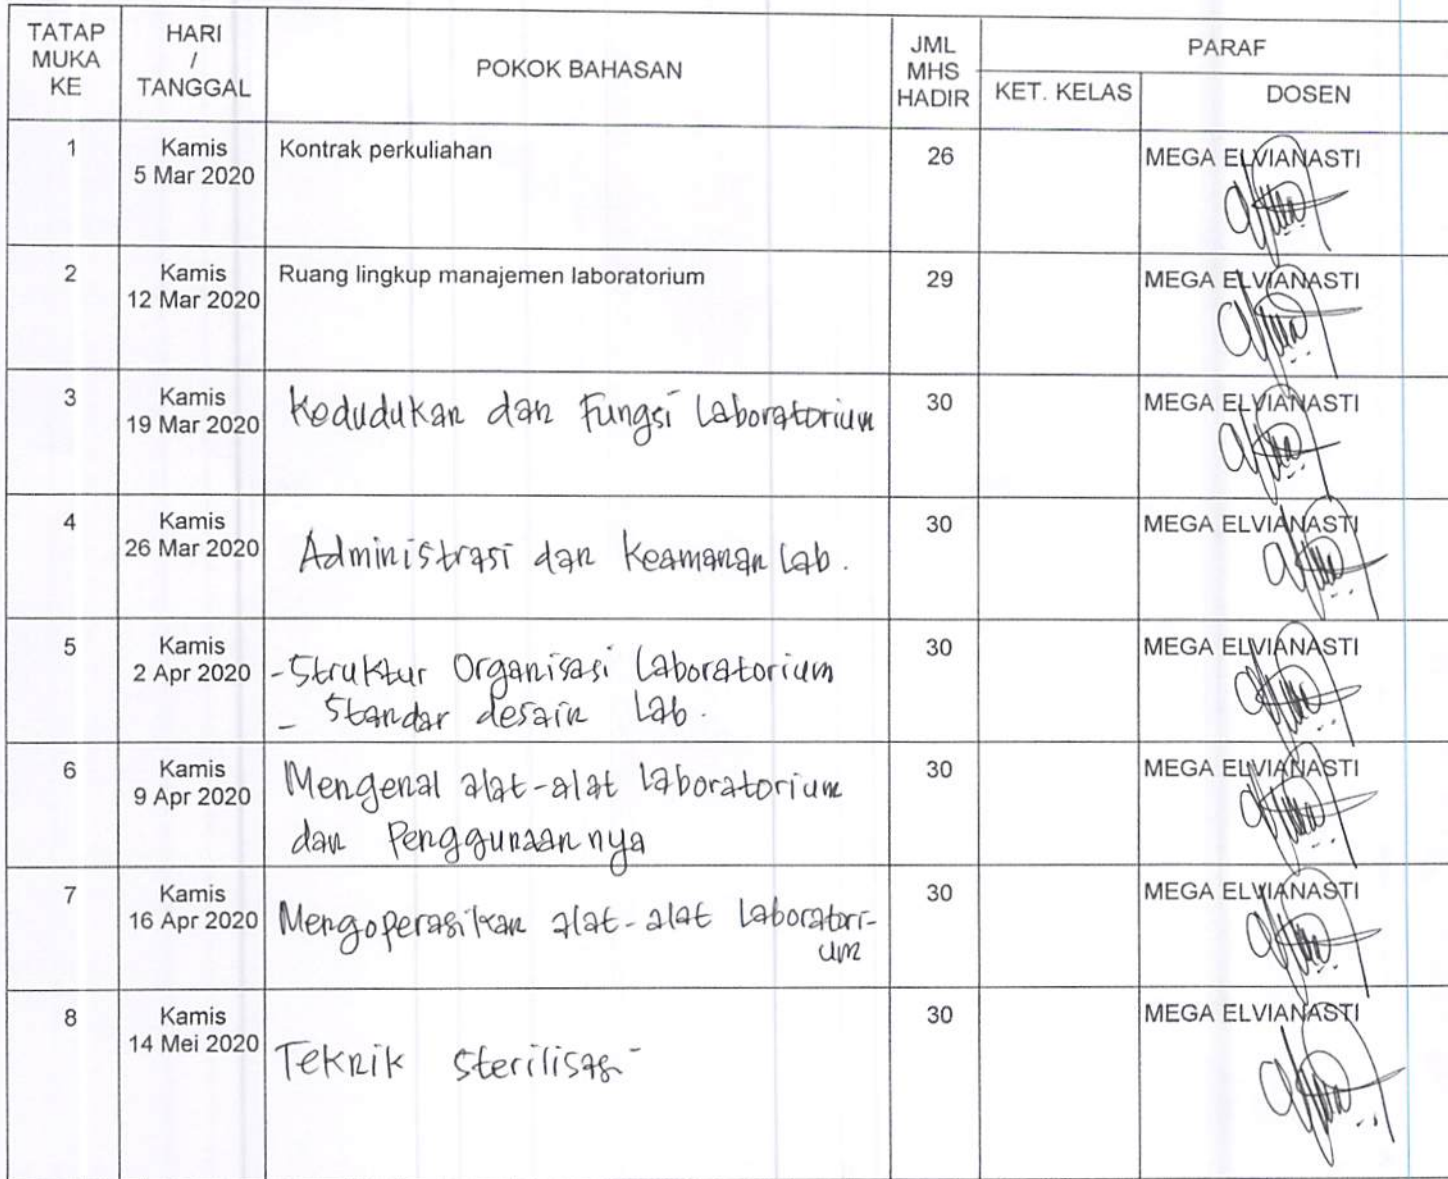 TATAP MUKA KE
HARI / TANGGAL
POKOK BAHASAN
JML MHS HADIR
PARAF
KET. KELAS
DOSEN
1
Kamis
5 Mar 2020
Kontrak perkuliahan
26
MEGA ELVIANASTI
2
Kamis
12 Mar 2020
Ruang lingkup manajemen laboratorium
29
MEGA ELVIANASTI
3
Kamis
19 Mar 2020
Kedudukan dan Fungsi Laboratorium
30
MEGA ELVIANASTI
4
Kamis
26 Mar 2020
Administrasi dan Keamanan Lab.
30
MEGA ELVIANASTI
5
Kamis
2 Apr 2020
- Struktur Organisasi Laboratorium
- Standar desain Lab.
30
MEGA ELVIANASTI
6
Kamis
9 Apr 2020
Mengenal alat-alat Laboratorium
dan Penggunaannya
30
MEGA ELVIANASTI
7
Kamis
16 Apr 2020
Mengoperasikan alat-alat Laboratori-
um
30
MEGA ELVIANASTI
8
Kamis
14 Mei 2020
Teknik Sterilisasi
30
MEGA ELVIANASTI